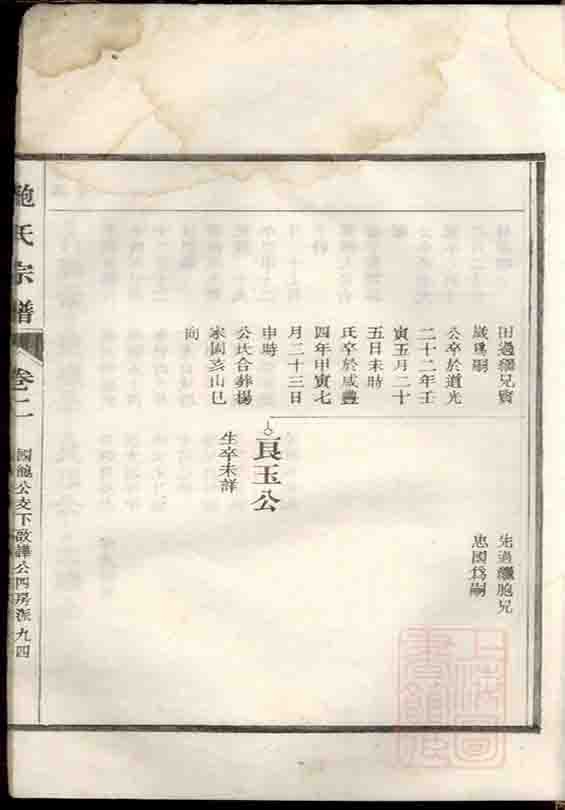 田過繼兄賓
嵗爲嗣
公卒於道光
二十二年壬
寅五月二十
五日未時
氏卒於咸豐
四年甲寅七
月二十三日
申時
公氏合葬楊
家園亥山巳
向
先過繼胞兄
忠國爲嗣
良玉公
生卒未詳
鮑氏宗譜
卷二
國龍公支下啟譁公四房派 九四
上海圖書館藏